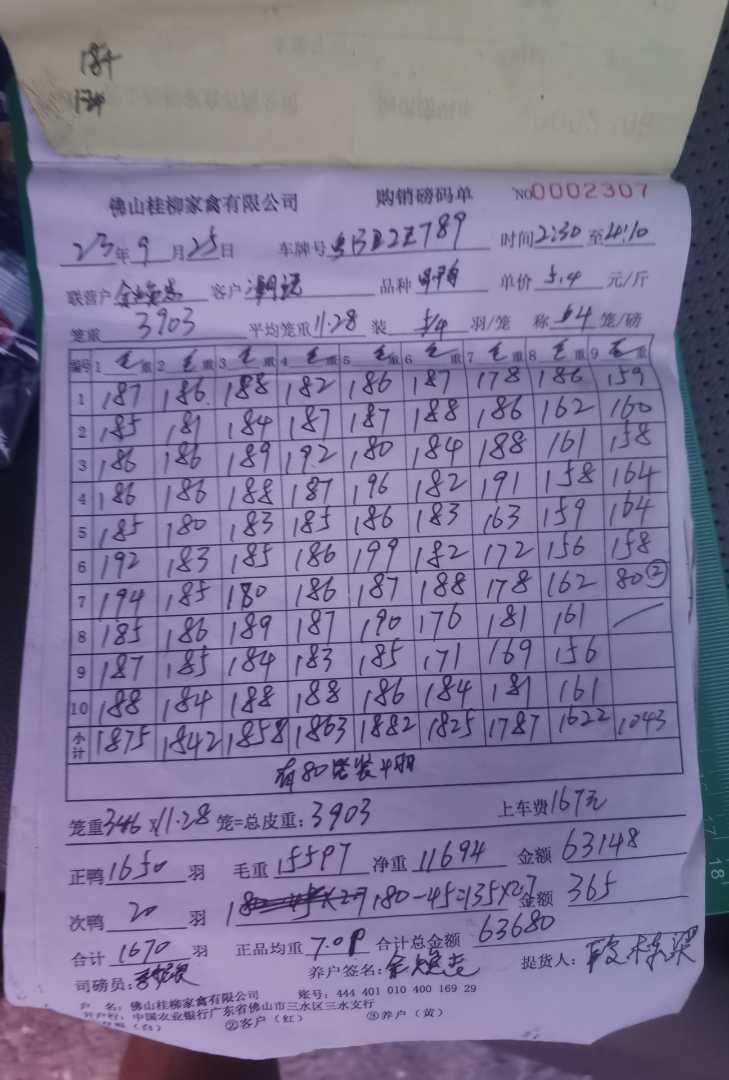 184
佛山桂柳家禽有限公司 购销磅码单 No0002307
23年9月25日 车牌号 粤BD2Z789 时间2:30至4:10
联营户 客户 品种 单价 5.4 元/斤
笼重 3903 平均笼重11.28 装 5/4 羽/笼 称 5/4 笼/磅
编号 1 毛重 2 毛重 3 毛重 4 毛重 5 毛重 6 毛重 7 毛重 8 毛重 9 毛重
1 187 186 188 182 186 187 178 186 159
2 185 181 184 187 187 188 186 162 160
3 186 186 189 192 180 184 188 161 158
4 186 186 188 187 196 182 191 158 164
5 185 180 183 185 186 183 163 159 164
6 192 183 185 186 199 182 172 156 158
7 194 185 180 186 187 188 178 162 80②
8 185 186 189 187 190 176 181 161
9 187 185 184 183 185 171 169 156
10 188 184 188 188 186 184 181 161
小计 1875 1842 1858 1863 1882 1825 1787 1622 1043
有80笼装4羽
笼重346×11.28笼=总皮重:3903 上车费167元
正鸭1650羽 毛重15597 净重11694 金额63148
次鸭20羽 180-45=135×2.7 金额365
合计1670羽 正品均重7.09 合计总金额63680
司磅员: 养户签名: 提货人:
户 名:佛山桂柳家禽有限公司 账号:444 401 010 400 169 29
开户行:中国农业银行广东省佛山市三水区三水支行
(白) ②客户(红) ③养户(黄)